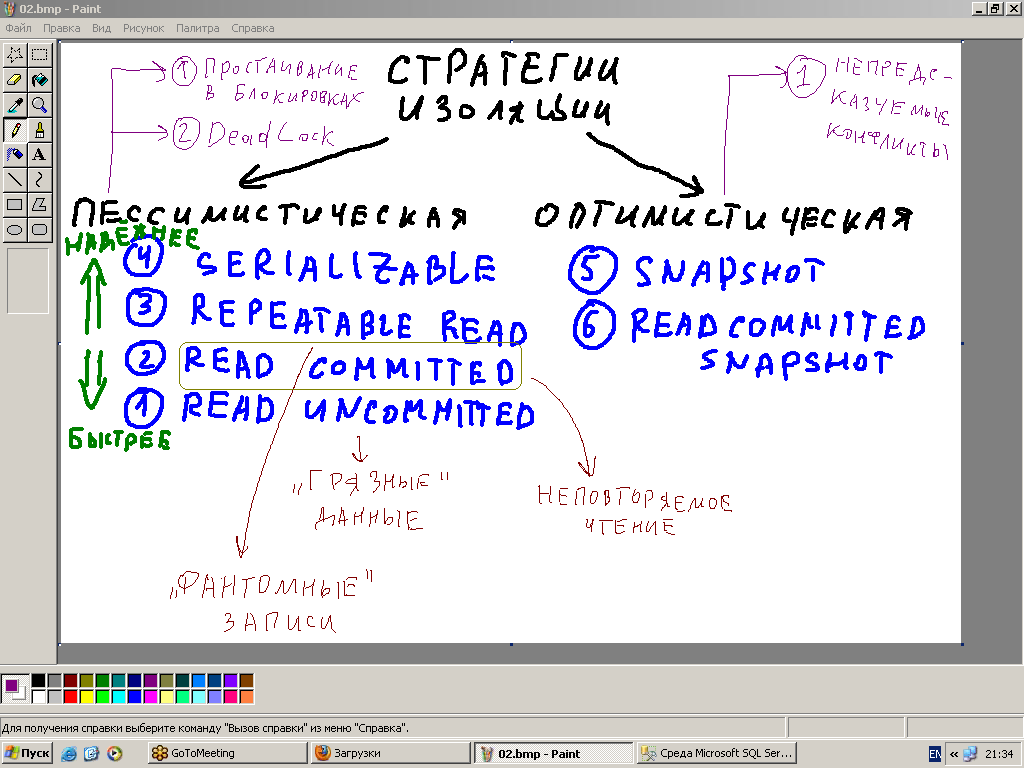 02.bmp - Paint
Файл Правка Вид Рисунок Палитра Справка
СТРАТЕГИИ
ИЗОЛЯЦИИ
1 ПРОСТАИВАНИЕ
В БЛОКИРОВКАХ
2 DeadLock
1 НЕПРЕДС-
КАЗУЕМЫЕ
КОНФЛИКТЫ
ПЕССИМИСТИЧЕСКАЯ
НАДЁЖНЕЕ
4 SERIALIZABLE
3 REPEATABLE READ
2 READ COMMITTED
1 READ UNCOMMITTED
БЫСТРЕЕ
ОПТИМИСТИЧЕСКАЯ
5 SNAPSHOT
6 READ COMMITTED
SNAPSHOT
„ГРЯЗНЫЕ"
ДАННЫЕ
НЕПОВТОРЯЕМОЕ
ЧТЕНИЕ
„ФАНТОМНЫЕ"
ЗАПИСИ
Для получения справки выберите команду "Вызов справки" из меню "Справка".
Пуск GoToMeeting Загрузки 02.bmp - Paint Среда Microsoft SQL Ser... EN « 21:34